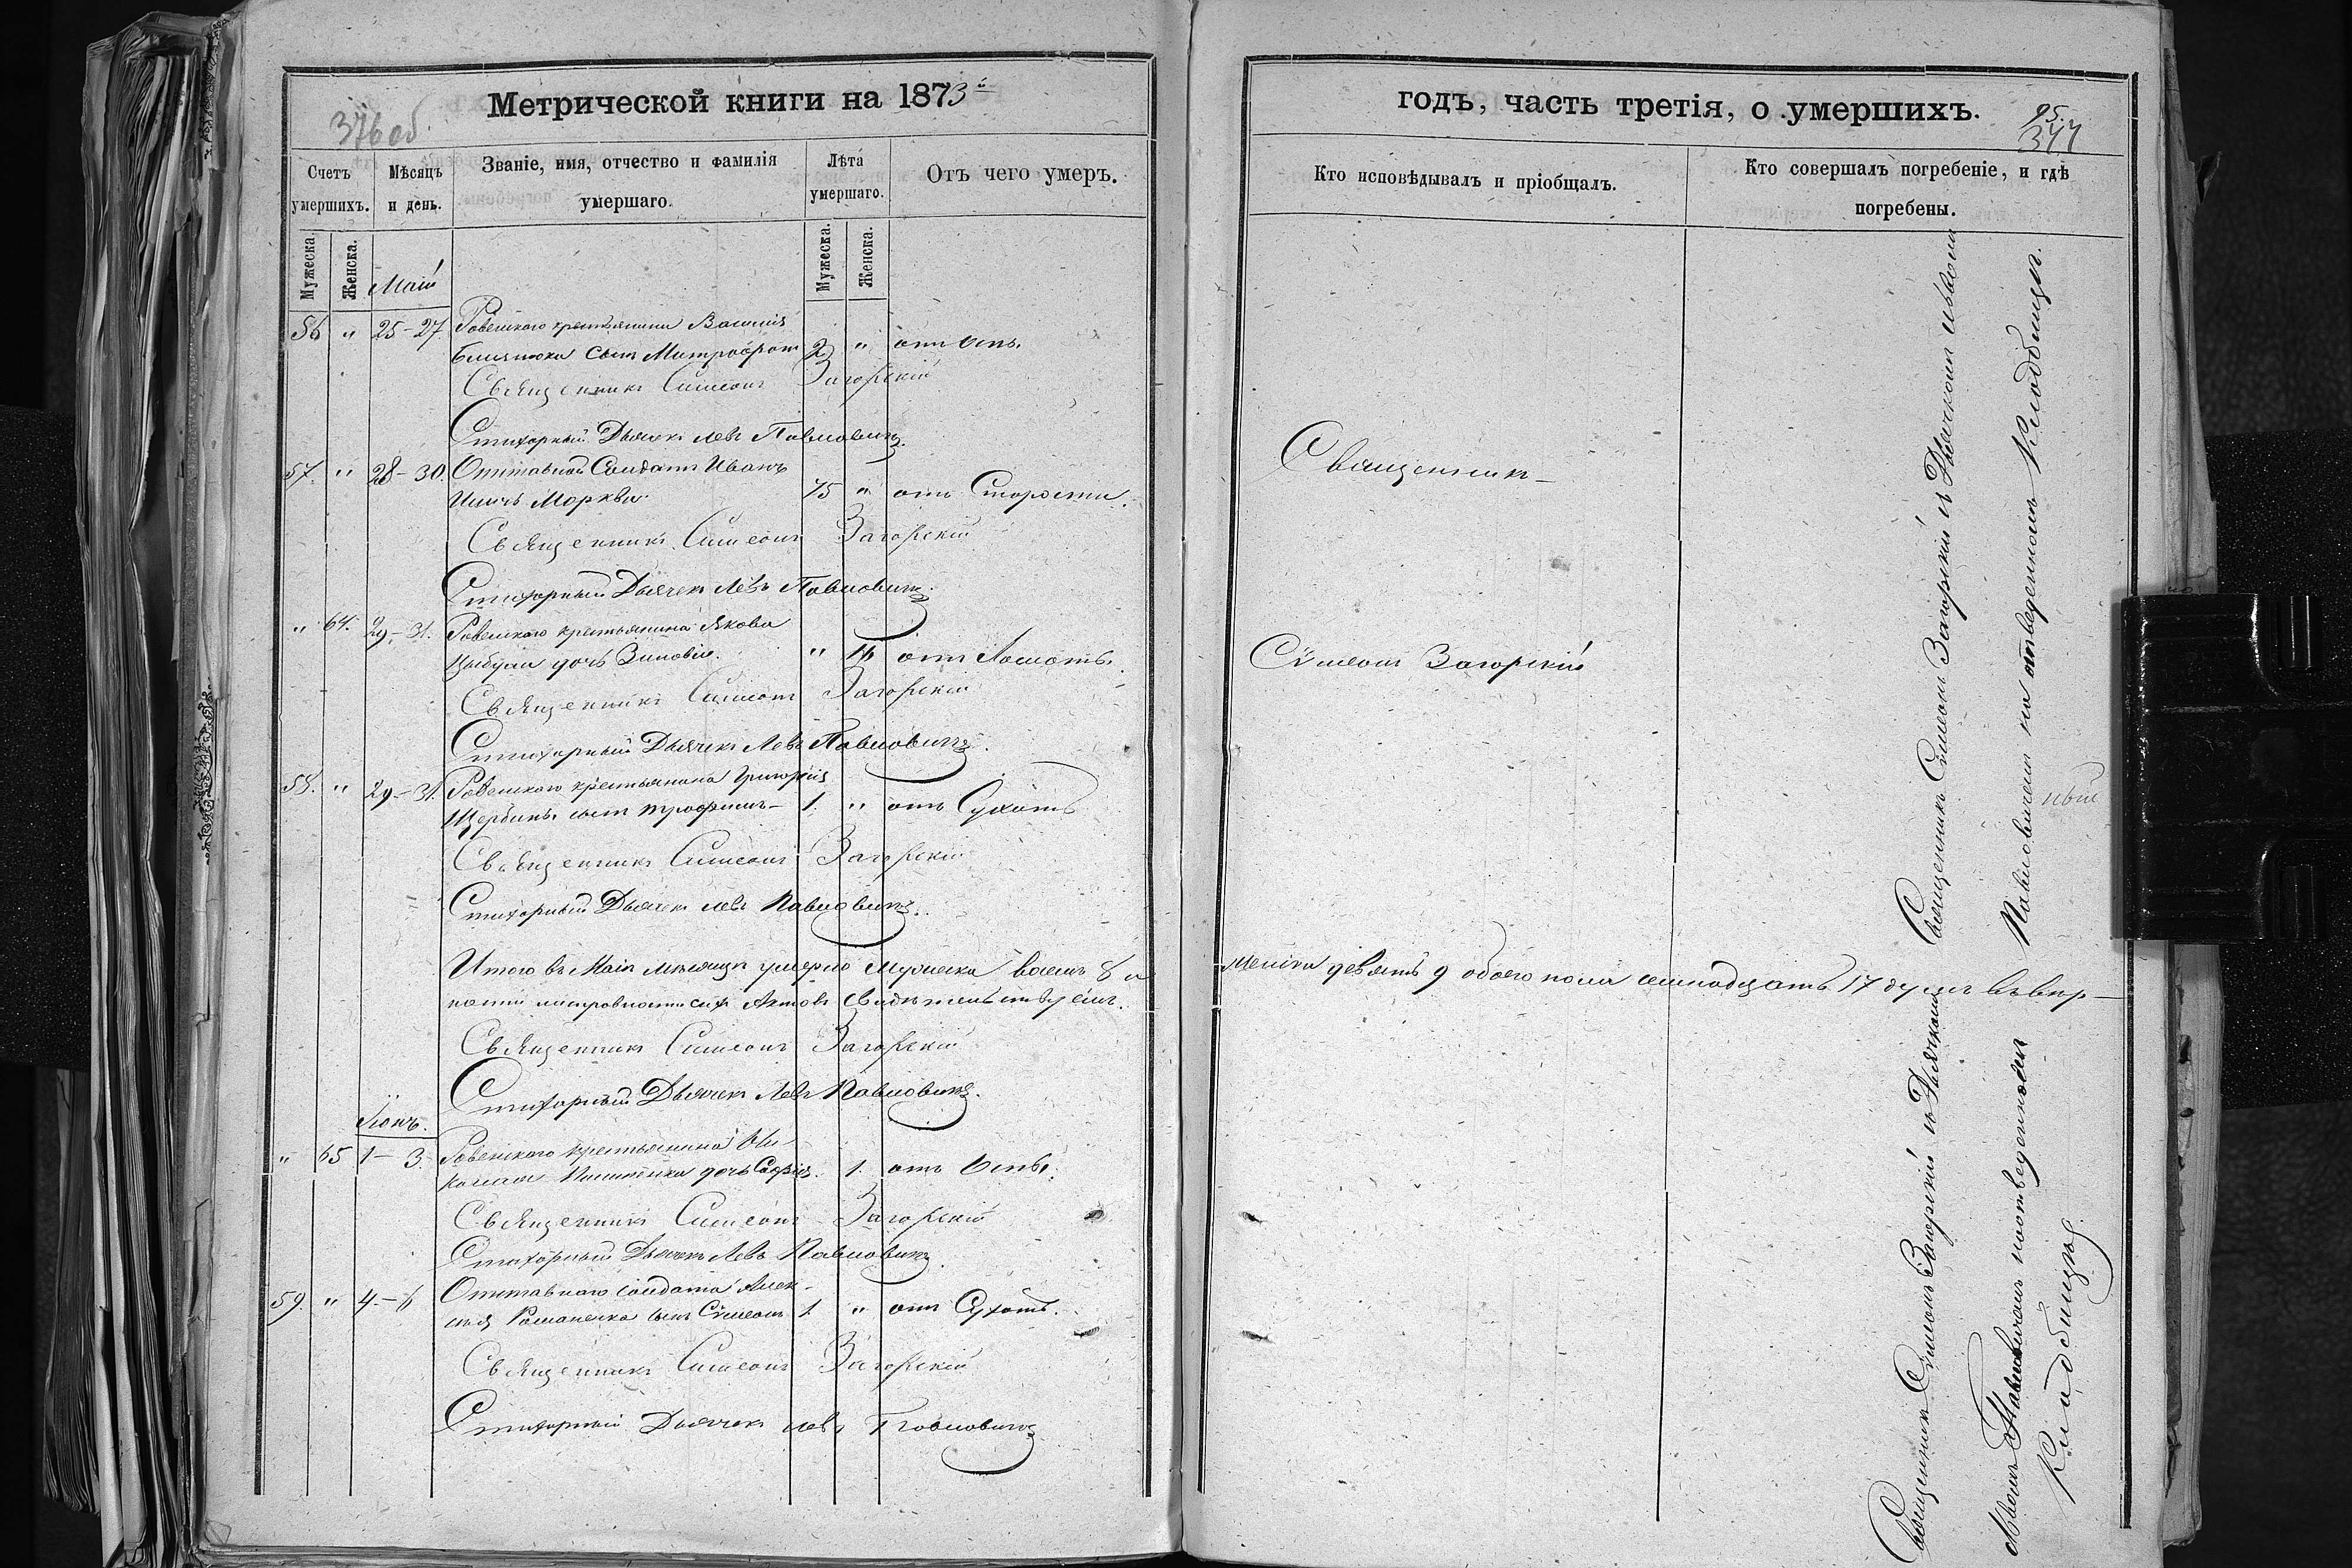 Метрической книги на 1873й
376 об.
Счетъ умершихъ.
Мѣсяцъ и день.
Званіе, имя, отчество и фамилія умершаго.
Лѣта умершаго.
Отъ чего умеръ.
Мужеска.
Женска.
Мужеска.
Женска.
Май
56 " 25-27. Ровенского крестьянина Василія
сынъ Митрофанъ 2 " отъ Оспы
Священникъ Симеонъ Загорскій
Стихарный Дьячекъ Левъ Павловичъ.
57. " 28-30. Отставной Солдатъ Иванъ
Морква 75 " отъ Старости.
Священникъ Симеонъ Загорскій
Стихарный Дьячекъ Левъ Павловичъ.
" 64. 29-31. Ровенского крестьянина Якова
Цыбули дочь Зиновія. " отъ
Священникъ Симеонъ Загорскій
Стихарный Дьячекъ Левъ Павловичъ.
58. " 29-31. Ровенского крестьянина Григорія
Щербины сынъ Трофимъ- 1. " отъ Сухотъ
Священникъ Симеонъ Загорскій
Стихарный Дьячекъ Левъ Павловичъ.
Итого въ Маѣ мѣсяцѣ умерло мужеска восемь 8 и
сихъ Актовъ свидѣтельствуемъ.
Священникъ Симеонъ Загорскій
Стихарный Дьячекъ Левъ Павловичъ.
Іюнь.
" 65 1- 3. Ровенского крестьянина Ни-
колая дочь Софія. 1. отъ Оспы.
Священникъ Симеонъ Загорскій
Стихарный Дьячекъ Левъ Павловичъ.
59. " 4.-6 Отставнаго солдата Алек-
сѣя Романенка сынъ Сѵмеонъ 1. " отъ Сухотъ.
Священникъ Симеонъ Загорскій
Стихарный Дьячекъ Левъ Павловичъ
годъ, часть третія, о умершихъ.
95.
377
Кто исповѣдывалъ и пріобщалъ.
Кто совершалъ погребеніе, и гдѣ погребены.
Священникъ-
Сѵмеонъ Загорскій
Священникъ Сѵмеонъ Загорскій съ Дьячкомъ Львомъ
Павловичемъ на отведенномъ Кладбищѣ.
женска девять 9 обоего пола семнадцать 17 душъ
Священникъ Сѵмеонъ Загорскій съ Дьячкомъ
Львомъ Павловичемъ на отведенномъ
Кладбищѣ.